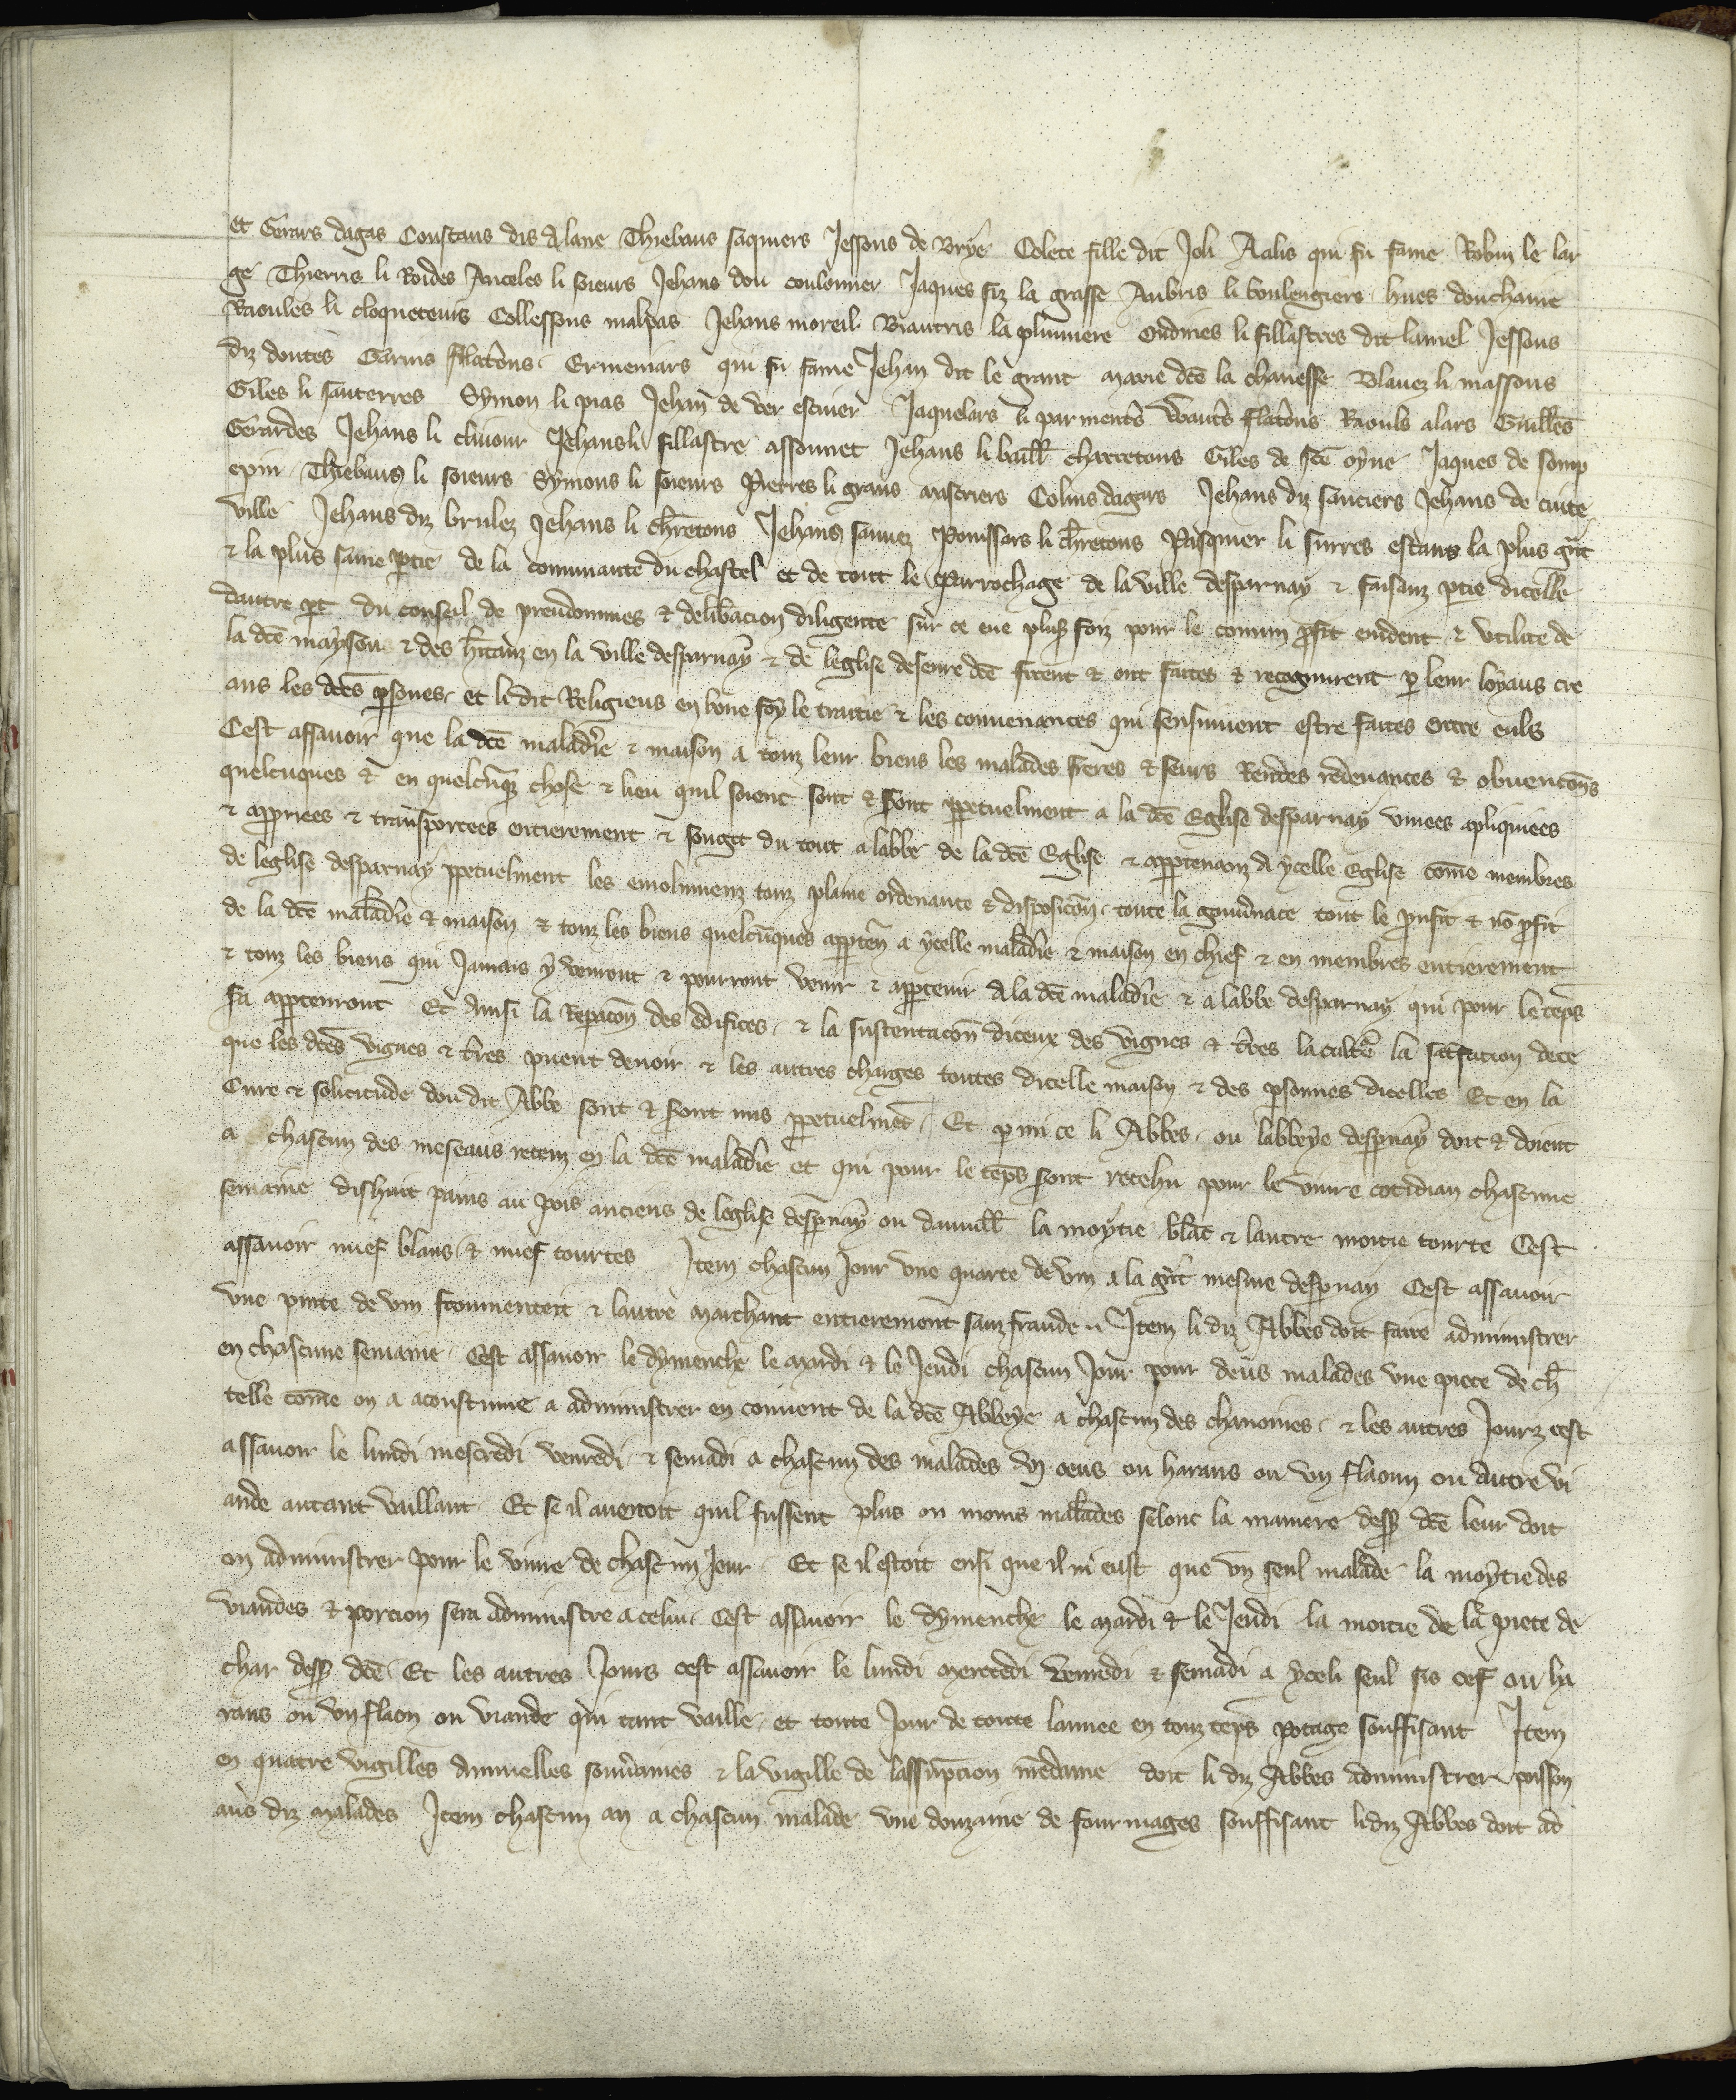 et Gerars dagas Constans dis dylane Thiebaus saquiers Jessons de Brye Colete fille dit Joli Aalis qui fu fame Robin le lar
ge Thierris li Roides Anceles li soieurs Jehans dou coulonnier Jaques fiz la grasse Aubris li boulengiers hues douchame
Raoules li cloqueteurs Collessons malpas Jehans moreil Biautris la plumiere Oudines li fillastres dit lamel Jessons
diz doutes Garins filatons Ermeniars qui fu fame Jehan dit le grant marie dce la chanesse Blauez li massons
Giles li santerres Symon li pias Jehan de ver escuier Jaquelars li parments Wauts flatons Raouls alars Guilles
Gerardes Jehans li clinour Jehans li fillastre assonnet Jehans li baill charretons Giles de sce oyne Jaques de somp
epin Thiebaus li soieurs Symons li soieurs Pierres li grans mistriers Colins dagars Jehans diz sauciers Jehans de cuite
ville Jehans diz brulez Jehans li chretons Jehans sannez Ponssars li chretons Pasquier li surres estans la plus grat
& la plus saine ptie de la communaute du chastel et de tout le parrochage de la ville desparnay & faisanz ptie dicelle
dautre pt du conseil de preudommes & delibacion diligente sur ce eue plus foiz pour le comun profit euident & utilite de
la dce mayson & des hitanz en la ville desparnay & de leglise deseure dce firent & ont faites & recognurent p leur loyaus cre
ans les dces psones et li dit Religieus en bone foy le traitie & les conuenances qui sensuiuent estre faites entre euls
Cest assauoir que la dce maladie & maison a touz leur biens les malades freres & seurs Rentes redeuances & obuencons
quelcuques & en quelcuq chose & lieu quil soient sont & soront ppetuelment a la dce Eglise desparnay unees apliquiees
& appriees & transportees entierement & souget du tout a labbe de la dce Eglise & appartenanz a ycelle Eglise come membres
de leglise desparnay ppetuelment les emolumenz touz plaine ordenance & disposicon toute la gouunace tout le prufit & no pfit
de la dce maladie & maison & touz les biens quelcuques apptens a ycelle maladie & maison en chief & en membres entierement
& touz les biens qui Jamais y venront & pourront venir & apptenir a la dce maladie & a labbe desparnay qui pour le teps
sa apptenront Et ausi la Repacon des edifices & la sustentacon diceux des vignes & tres la culte la satfacion de ce
que les dces vignes & tres puent deuoir & les autres charges toutes dicelle maison & des psonnes dicelles Et en la
Cure & solicitude dou dit Abbe sont & soront mis ppetuelmet Et p mi ce li Abbes ou labbeye despnay doit & doient
a chascun des meseaus retenz en la dce maladie et qui pour le teps sont retehu pour le viure cotidian chascune
semaine dishuit pains au pois anciens de leglise despnay ou dauuill la moytie blac & lautre moitie tourte Cest
assauoir nuef blans & nuef tourtes Item chascun Jour vne quarte de vin a la grat mesme despnay Cest assauoir
vne pinte de vin fronmenteit & lautre marchant entierement sanz fraude Item li diz Abbes doit faire administrer
en chascune semaine Cest assauoir le dymenche le mardi & le Jeudi chascun Jour pour deus malades vne piece de ch
telle come on a acoustume a administrer en conuent de la dce Abbeye a chascun des chanoines & les autres Jourz cest
assauoir le lundi mescredi venredi & semadi a chascun des malades vj oeus ou harans ou vn flaoun ou autre vi
ande autant vaillant Et se il auenoit quil fussent plus ou moins malades selonc la maniere dess dce leur doit
on administrer pour le viure de chascun Jour Et se il estoit ensi que il ni eust que vn seul malade la moytie des
viandes & porcion sera administre a celui cest assauoir le dymenche le mardi & le Jeudi la moitie de la piece de
char dess dce Et les autres Jours cest assauoir le lundi mercredi venredi & semadi a yceli seul sis oef ou ha
rans ou vn flaon ou viande qui tant vaille et toute Jour de toute lannee en touz teps potage souffisant Item
en quatre vigilles annuelles souuaines & la vigille de lassupcion nredame doit li diz Abbes administrer poisson
aus diz malades Item chascun an a chascun malade vne douzaine de fourmages souffisant li diz Abbes doit ad